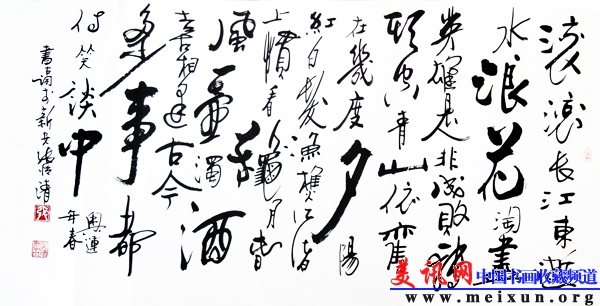 滚滚长江东逝
水浪花淘尽
英雄是非成败转
頭空青山依舊
在幾度夕陽
红白髮渔樵江渚
上慣看秋月春
風一壺濁酒
喜相逢古今
多少事都
付笑谈中
奥運年春
美讯网中国书画收藏频道
www.meixun.org